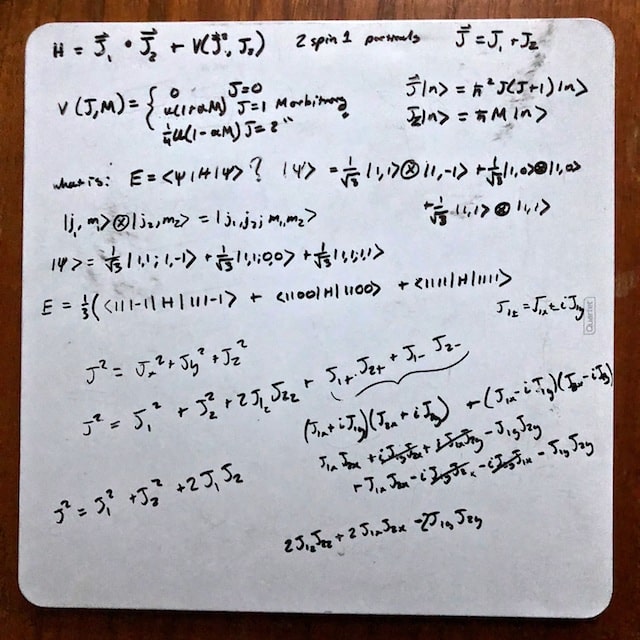 H = J⃗₁ • J⃗₂ + V(J⃗², J_z) 2 spin 1 J⃗ = J₁ + J₂
V(J,M) = { 0 J=0
u(1+αM) J=1 M arbitrary
¼u(1-αM) J=2 "
J⃗|n> = ħ² J(J+1)|n>
J_z|n> = ħ M |n>
what is: E = <ψ|H|ψ> ? |ψ> = 1/√3 |1,1>⊗|1,-1> + 1/√3 |1,0>⊗|1,0>
+ 1/√3 |1,1> ⊗ |1,1>
|j₁ m₁>⊗|j₂,m₂> = |j₁,j₂; m₁m₂>
|ψ> = 1/√3 |1,1;1,-1> + 1/√3 |1,1;0,0> + 1/√3 |1,1;1,1>
E = 1/3 (<111-1|H|111-1> + <1100|H|1100> + <1111|H|1111>
J₁± = J₁ₓ ± iJ₁y
Quartet
J² = Jₓ² + Jy² + J_z²
J² = J₁² + J₂² + 2J₁zJ₂z + J₁₊J₂₊ + J₁₋J₂₋
(J₁ₓ + iJ₁y)(J₂ₓ + iJ₂y) + (J₁ₓ - iJ₁y)(J₂ₓ - iJ₂y)
J₁ₓJ₂ₓ + iJ₁yJ₂ₓ + iJ₁ₓJ₂y - J₁yJ₂y
+ J₁ₓJ₂ₓ - iJ₁yJ₂ₓ - iJ₂yJ₁ₓ - J₁yJ₂y
J² = J₁² + J₂² + 2J₁J₂
2J₁zJ₂z + 2J₁ₓJ₂ₓ - 2J₁yJ₂y